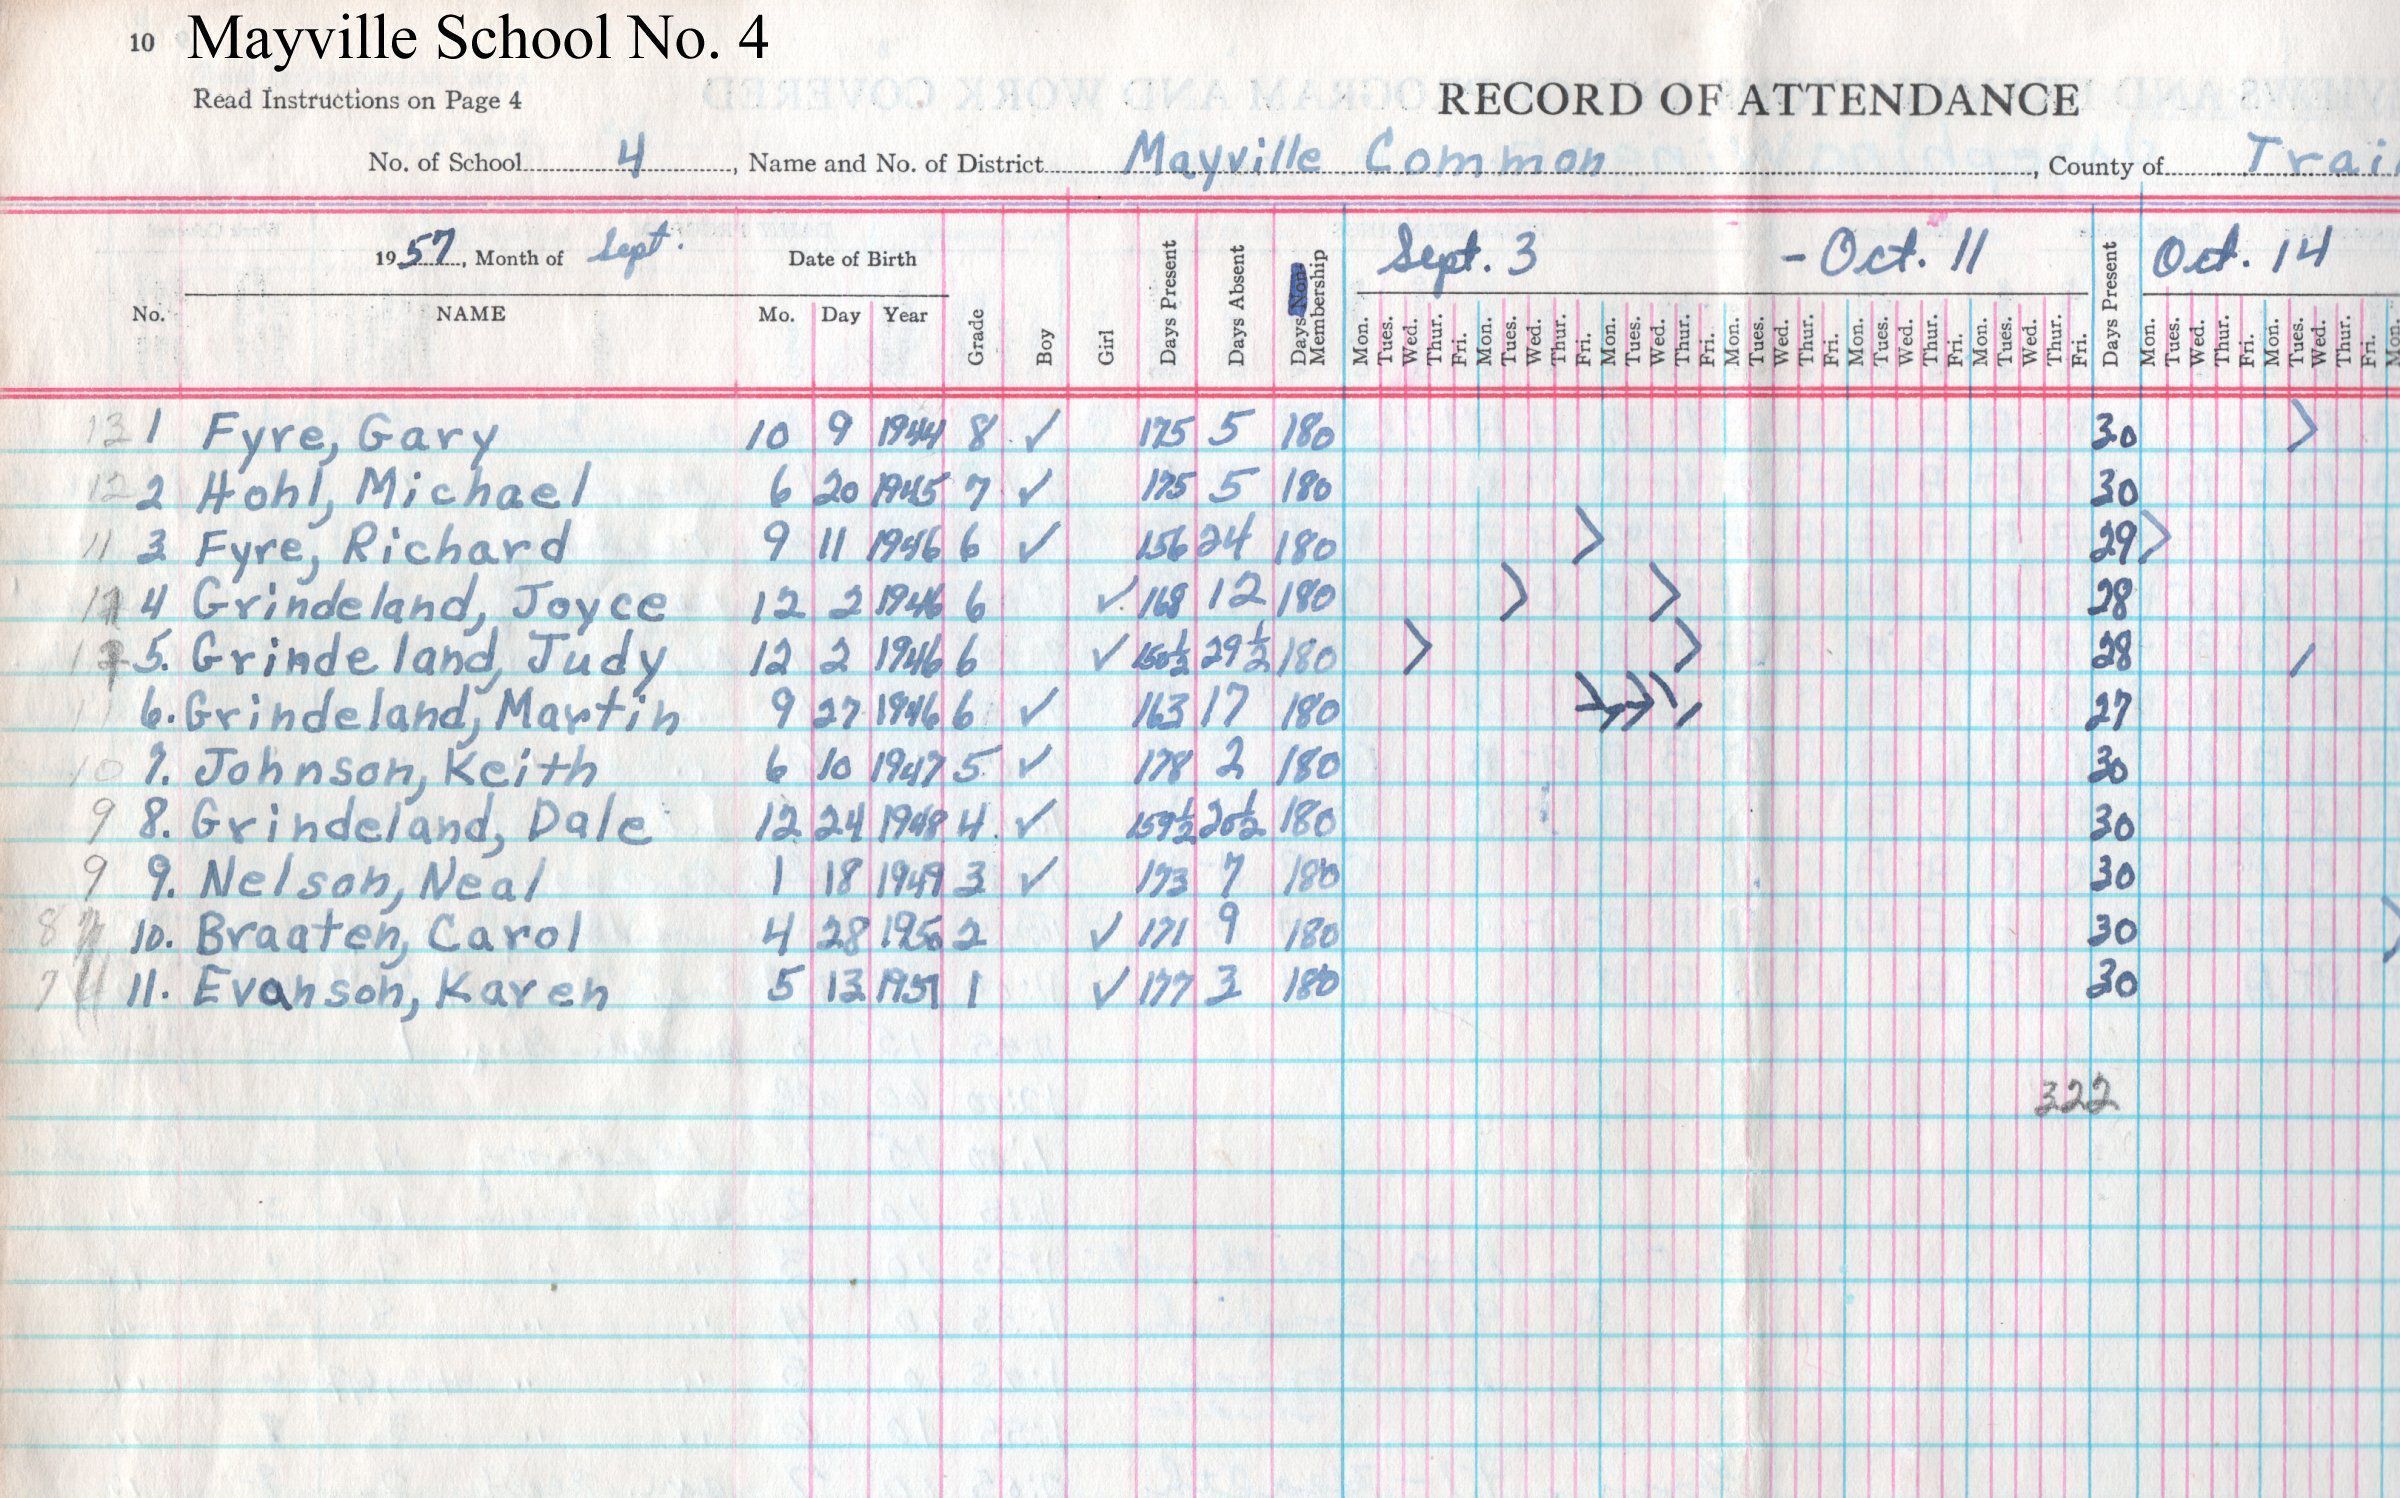 10 Mayville School No. 4
Read Instructions on Page 4
RECORD OF ATTENDANCE
No. of School 4, Name and No. of District Mayville Common, County of Trail
1957, Month of Sept. Date of Birth Sept. 3 - Oct. 11 Oct. 14
No. NAME Mo. Day Year Grade Boy Girl Days Present Days Absent Days Non Membership Mon. Tues. Wed. Thur. Fri. Mon. Tues. Wed. Thur. Fri. Mon. Tues. Wed. Thur. Fri. Mon. Tues. Wed. Thur. Fri. Mon. Tues. Wed. Thur. Fri. Mon. Tues. Wed. Thur. Fri. Days Present Mon. Tues. Wed. Thur. Fri. Mon. Tues. Wed. Thur. Fri. Mon.
13 1 Fyre, Gary 10 9 1944 8 ✓ 175 5 180 30
12 2 Hohl, Michael 6 20 1945 7 ✓ 175 5 180 30
11 3 Fyre, Richard 9 11 1946 6 ✓ 156 24 180 29
4 Grindeland, Joyce 12 2 1946 6 ✓ 168 12 180 28
5. Grindeland, Judy 12 2 1946 6 ✓ 150½ 29½ 180 28
11 6. Grindeland, Martin 9 27 1946 6 ✓ 163 17 180 27
10 7. Johnson, Keith 6 10 1947 5 ✓ 178 2 180 30
9 8. Grindeland, Dale 12 24 1948 4 ✓ 159½ 20½ 180 30
9 9. Nelson, Neal 1 18 1949 3 ✓ 173 7 180 30
8 10. Braaten, Carol 4 28 1950 2 ✓ 171 9 180 30
7 11. Evanson, Karen 5 13 1951 1 ✓ 177 3 180 30
322